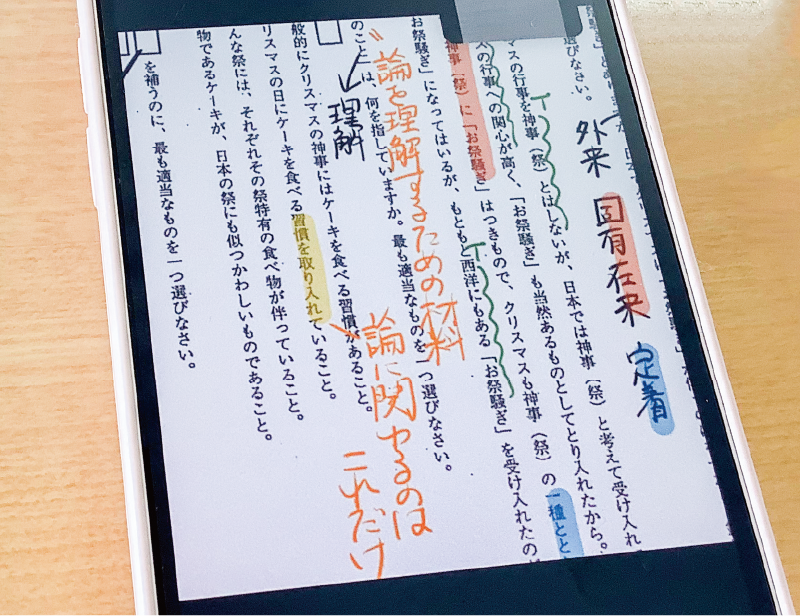 外来 固有 在来 定着
選びなさい。
マスの行事を神事（祭）とはしないが、日本では神事（祭）と考えて受け入れ
スの行事への関心が高く、「お祭騒ぎ」も当然あるものとしてとり入れたから。
神事（祭）に「お祭騒ぎ」はつきもので、クリスマスも神事（祭）の一種とと
お祭騒ぎ」になってはいるが、もともと西洋にもある「お祭騒ぎ」を受け入れたの
論を理解するための材料
のこと は、何を指していますか。最も適当なものを一つ選びなさい。
論に関わるのは
これだけ
理解
般的にクリスマスの神事にはケーキを食べる習慣があること。
リスマスの日にケーキを食べる習慣を取り入れていること。
んな祭には、それぞれその祭特有の食べ物が伴っていること。
物であるケーキが、日本の祭にも似つかわしいものであること。
を補うのに、最も適当なものを一つ選びなさい。